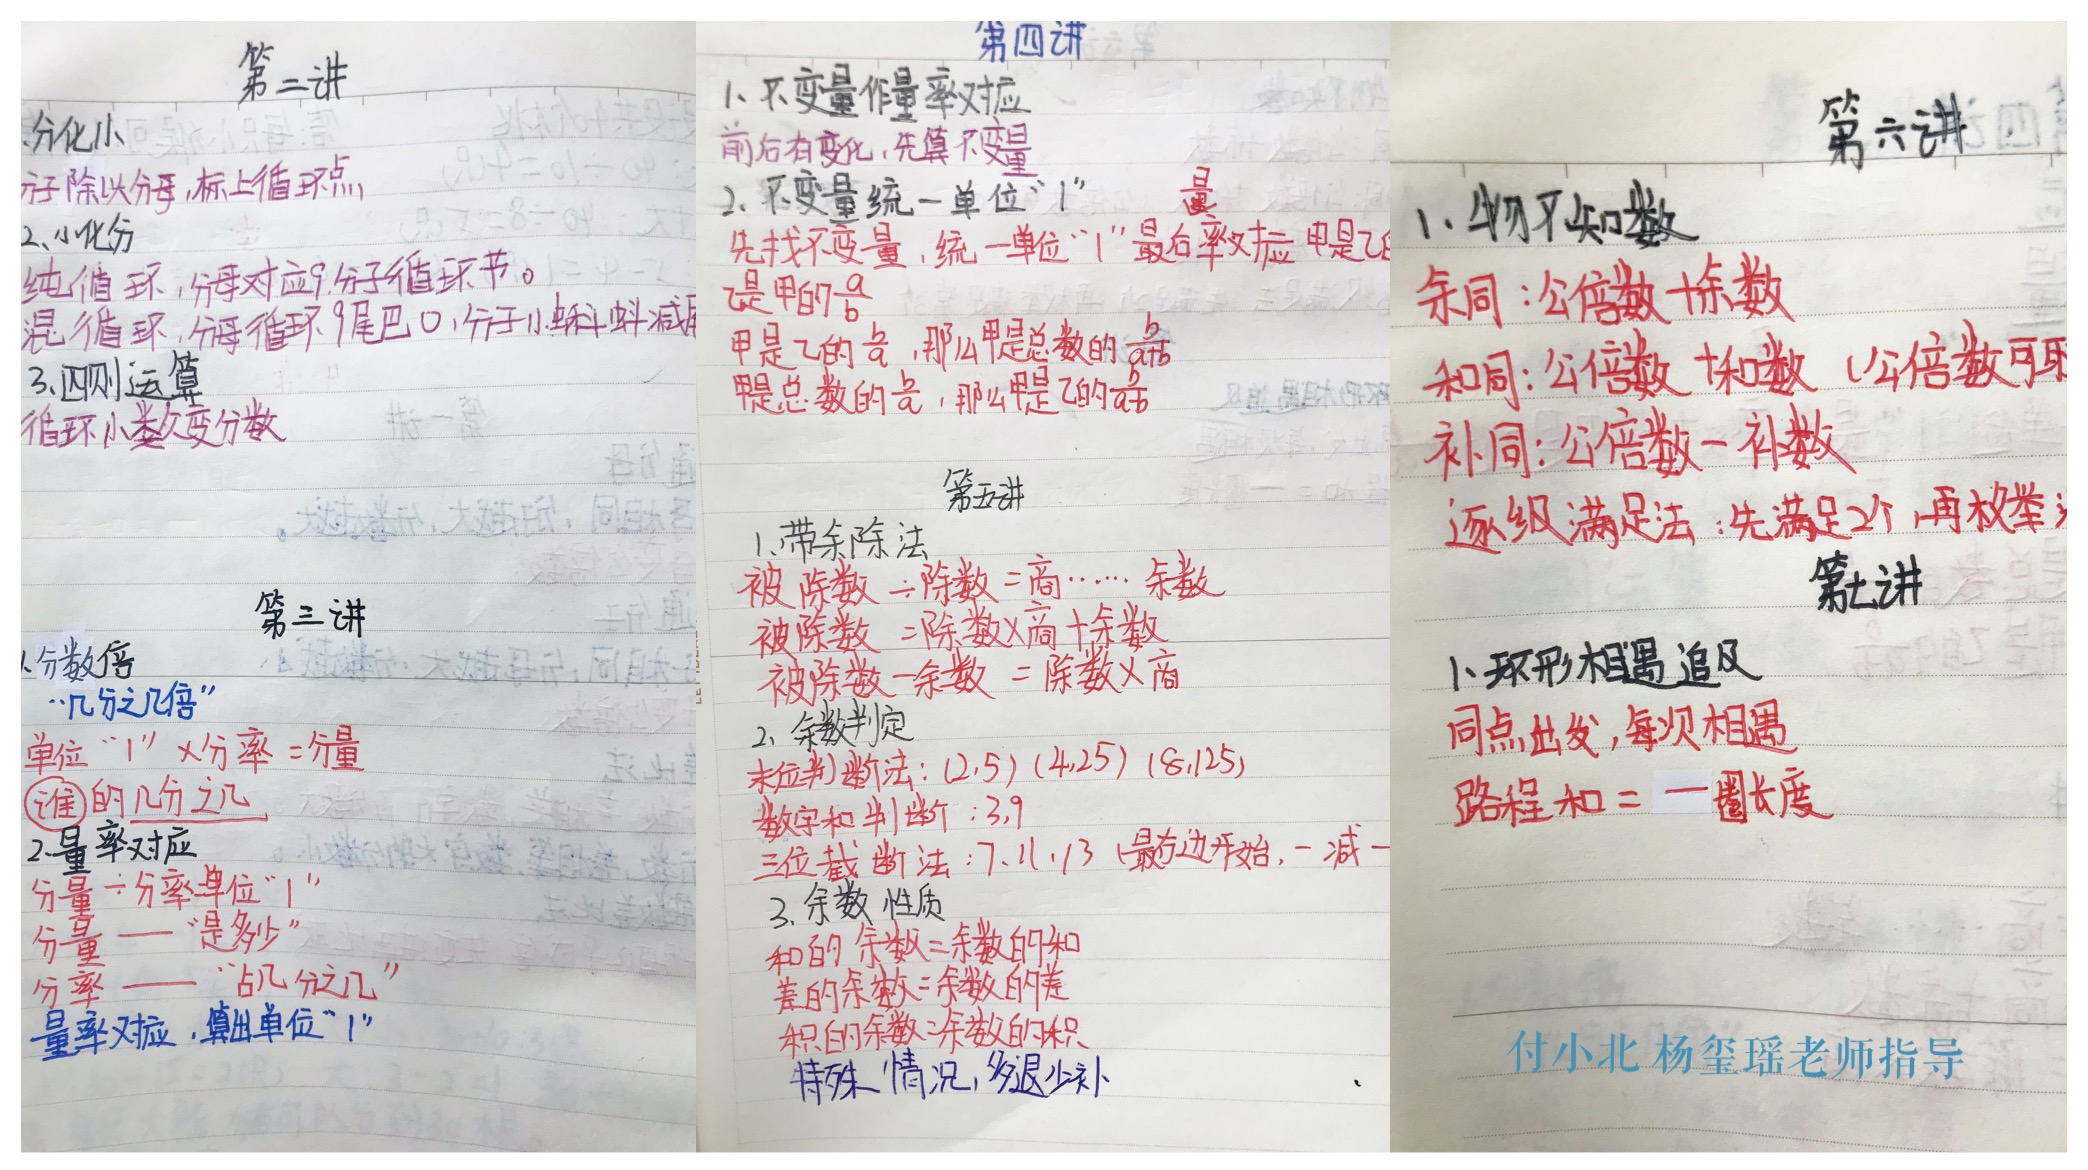 第二讲
1.分化小
分子除以分母,标上循环点,
2、小化分
纯循环,分母对应9,分子循环节。
混循环,分母循环9尾巴0,分子小蝌蚪减尾
3、四则运算
循环小数变分数
第三讲
1.分数倍
“几分之几倍”
单位“1”×分率=分量
谁的几分之几
2.量率对应
分量÷分率=单位“1”
分量——“是多少”
分率——“占几分之几”
量率对应,算出单位“1”
第四讲
1、不变量作量率对应
前后有变化,先算不变量
2、不变量统一单位“1”
量
先找不变量,统一单位“1”最后率对应 甲是乙的
乙是甲的a/b
甲是乙的b/a,那么甲是总数的b/a+b
甲是总数的b/a,那么甲是乙的b/a-b
第五讲
1、带余除法
被除数÷除数=商……余数
被除数=除数×商+余数
被除数-余数=除数×商
2、余数判定
末位判断法:(2,5)(4,25)(8,125)
数字和判断:3,9
三位截断法:7、11、13(最右边开始,一减一
3、余数性质
和的余数=余数的和
差的余数=余数的差
积的余数=余数的积
特殊情况,多退少补
第六讲
1、物不知数
余同:公倍数+余数
和同:公倍数+和数(公倍数可取
补同:公倍数-补数
逐级满足法:先满足2个,再枚举
第七讲
1、环形相遇追及
同点出发,每次相遇
路程和=一圈长度
付小北 杨玺瑶老师指导